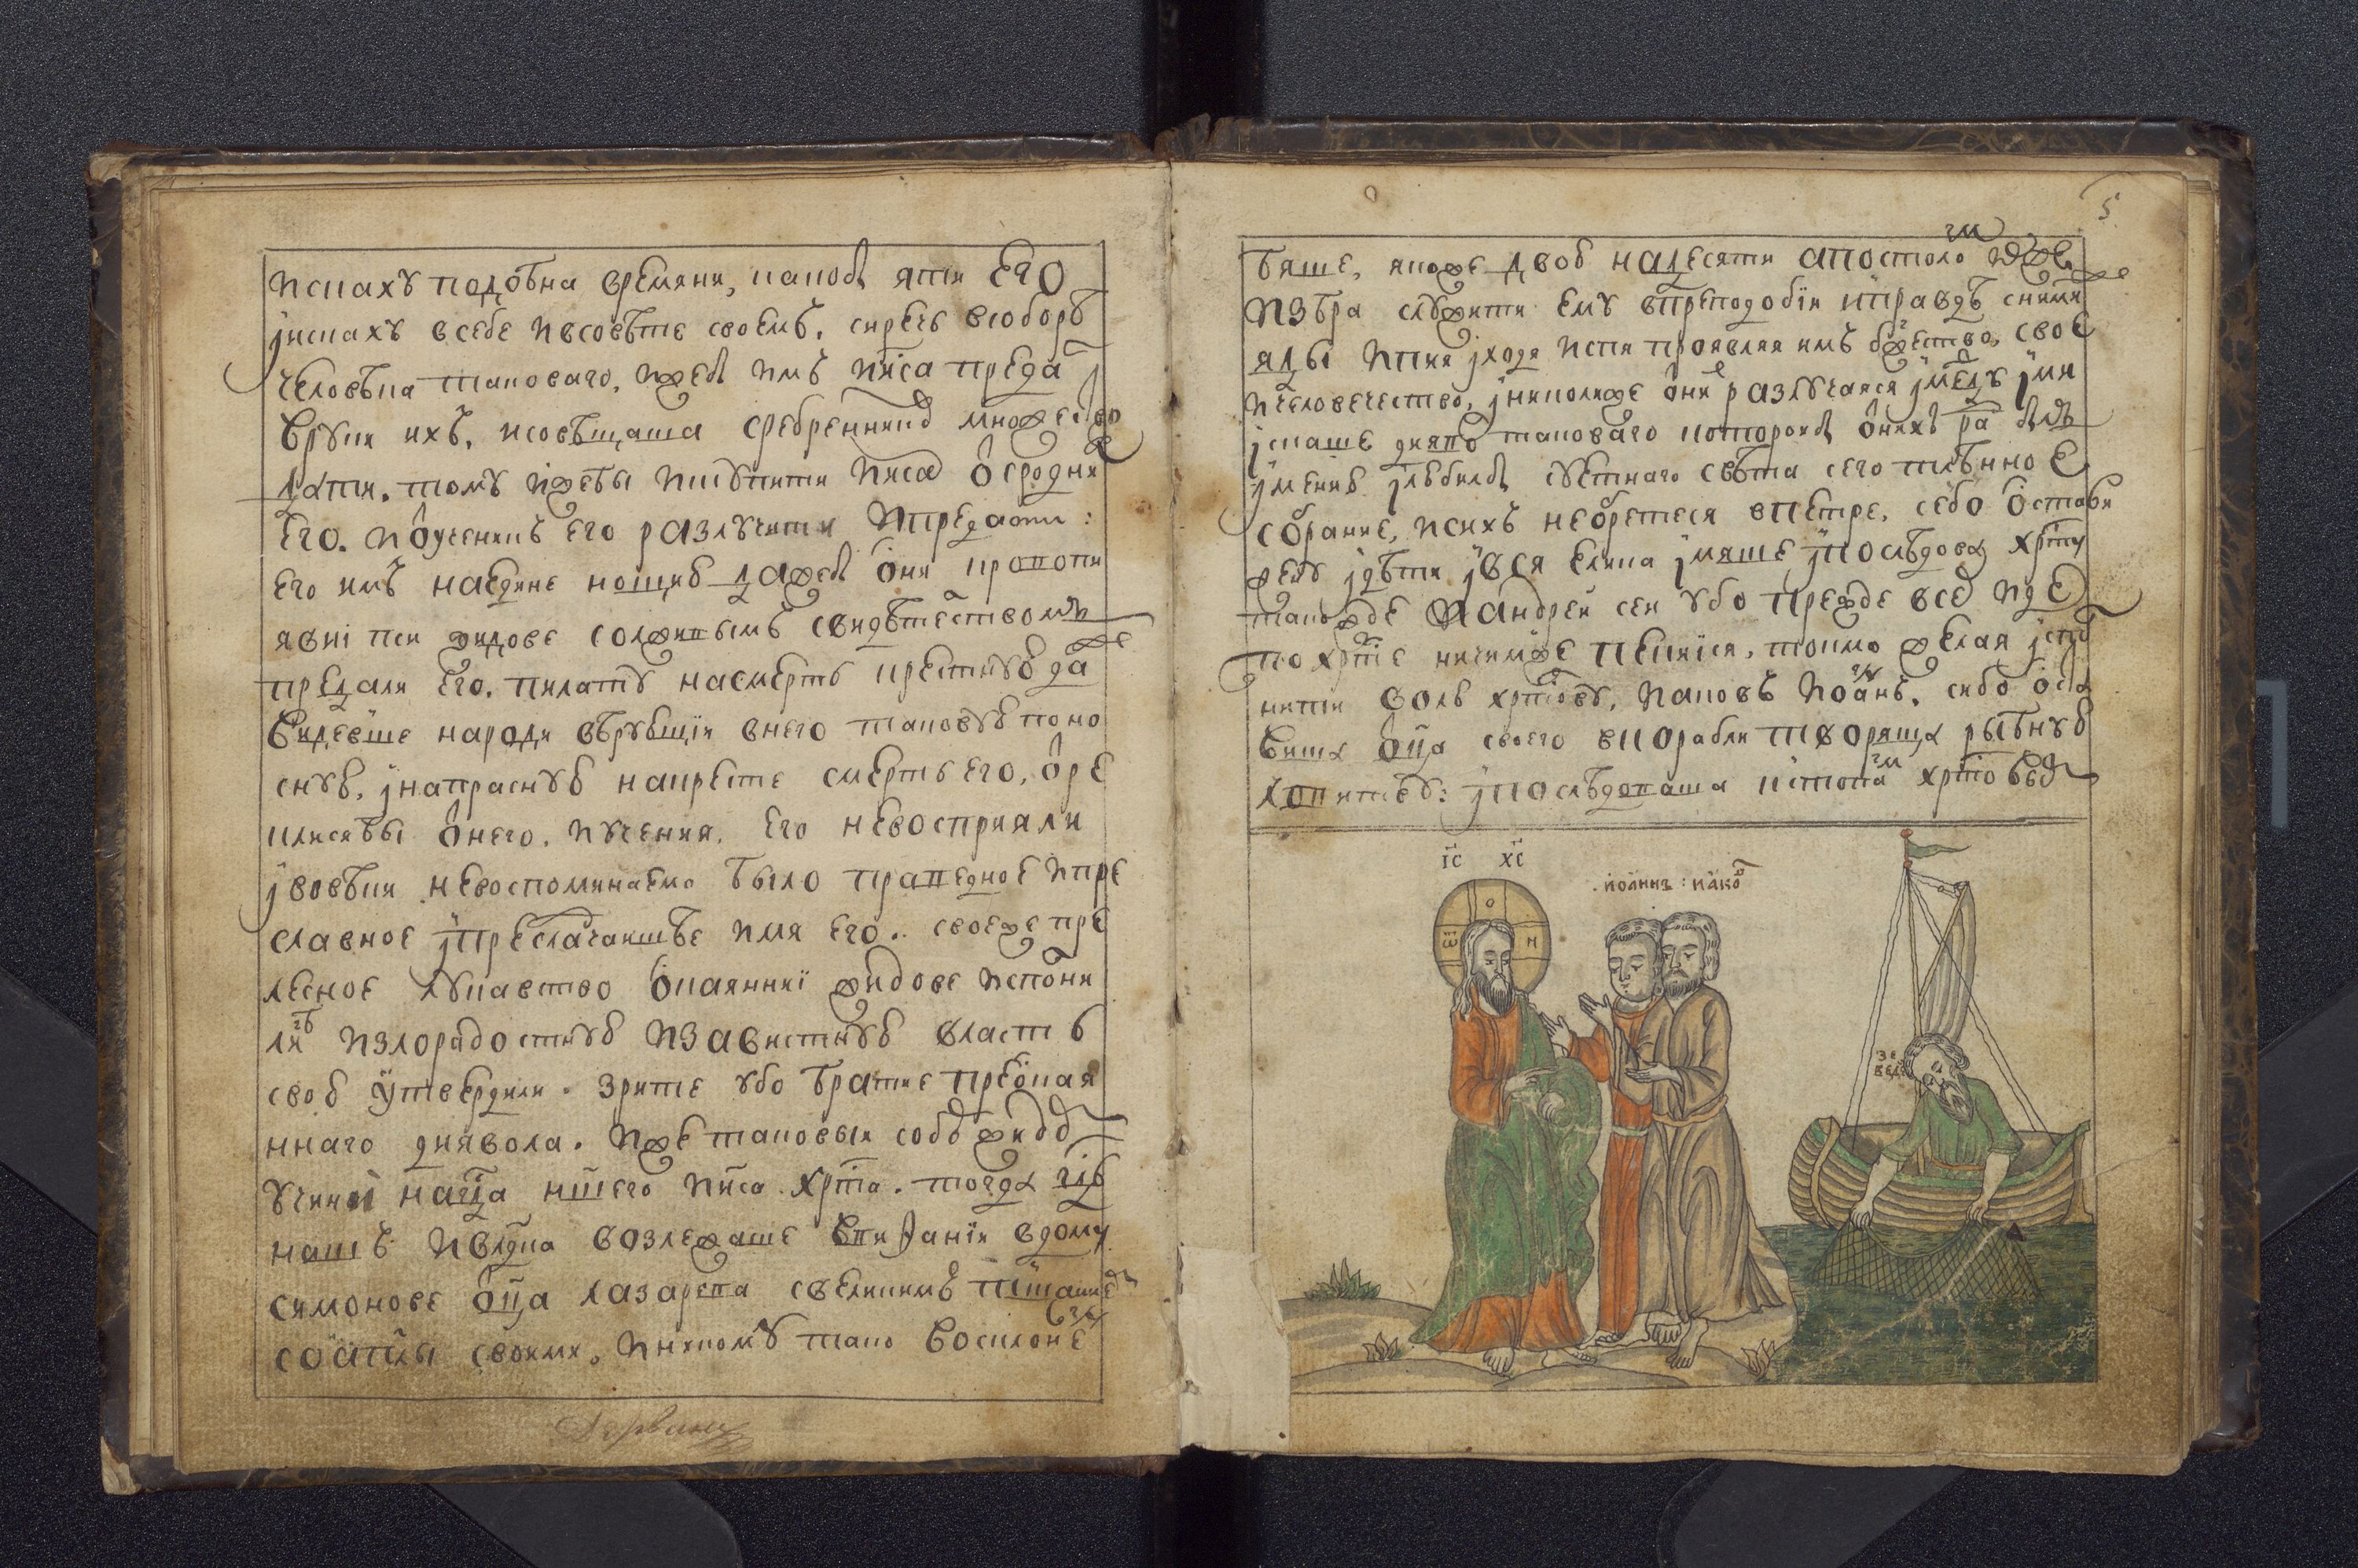 искаху подобна времяни, какобы яти его
искаху всебе ивсовѣте своемъ, сиречь всоборѣ
человѣка таковаго, ижебы имъ ииса преда
вруки ихъ, исовѣщаша сребренники множество
дати. тому ижебы искупити ииса
его. иоученикъ его разлучити ипредати:
его имъ наедине нощию дажебы они
явні пси жидове солживымъ свидѣтелствомъ
предали его. пилату насмерть крестную даже
видевше народи вѣрующіи внего таковую поно
сную, инапрасную накресте смерть его, ѿре
клисябы ѿнего, иучения, его невосприяли
ивовѣки невоспоминаемо было праведное ипре
славное ипресладчаишее имя его. своеже пре
лесное лукавство ѻкаяннїи жидове исполни
ли излорадостную изавистную власть
свою утвердили. зрите убо братие преѻкая
ннаго диявола. иже таковыи собо жидо
учини нагца ншего ииса хрта. тогда гдь
нашъ ивлдка возлежаше ввиѳанїи вдому
симонове ѻца лазарева свеликимъ тщанием
соапслы своими, никому тако восклоне
5
бяше, якоже двою надесяти апостоло иже
избра служити ему впреподобїи иправдѣ сними
яды ипия иходя испя проявляя имъ бжество свое
ичеловечество, иниколиже они разлучаяся
искаше дияво таковаго которонбы ѻнихъ ра былъ
имению илюбилбы суетнаго свѣта сего тлѣнное
собрание, исихъ неѻбретеся впетре, себо ѻстави
жену идѣти ився елика имяше ипослѣдова хрту
такожде иандреи сеи убо прежде всѣ иде
по хртѣ ничимже пекїися, токмо желая испо
нити волю хртову, иаковъ иоаннъ, сибо ѻста
виша ѻца своего вкорабли творяща рыбную
ловитву: ипослѣдоваша истопа хртовы
іс хс
иоаннъ : иако
ѿ о н
зе
веде